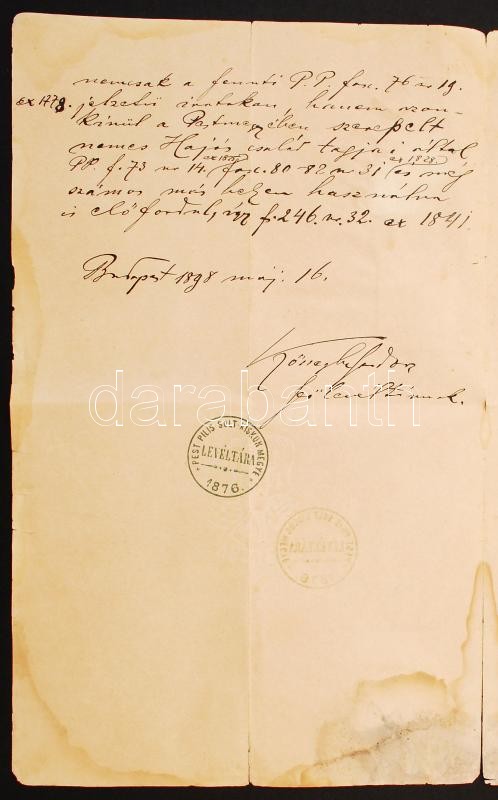 nemcsak a fennti P.P. fasc. 76 no 19.
ex 1778. jelzetű iratokan, hanem azon-
kinül a Pestmegyében szerepelt
nemes Hajós család tagjai által
ex 1828.
PP. f. 73 no 14. fasc. 80-82 no 31 és még
számos más helyen használva
is előfordul, így f. 246. no. 32. ex 1841.
Budapest 1898 máj. 16.
főlevéltárnok.
darabanth
PEST PILIS SOLT KISKUN MEGYE
LEVÉLTÁRA
1876.